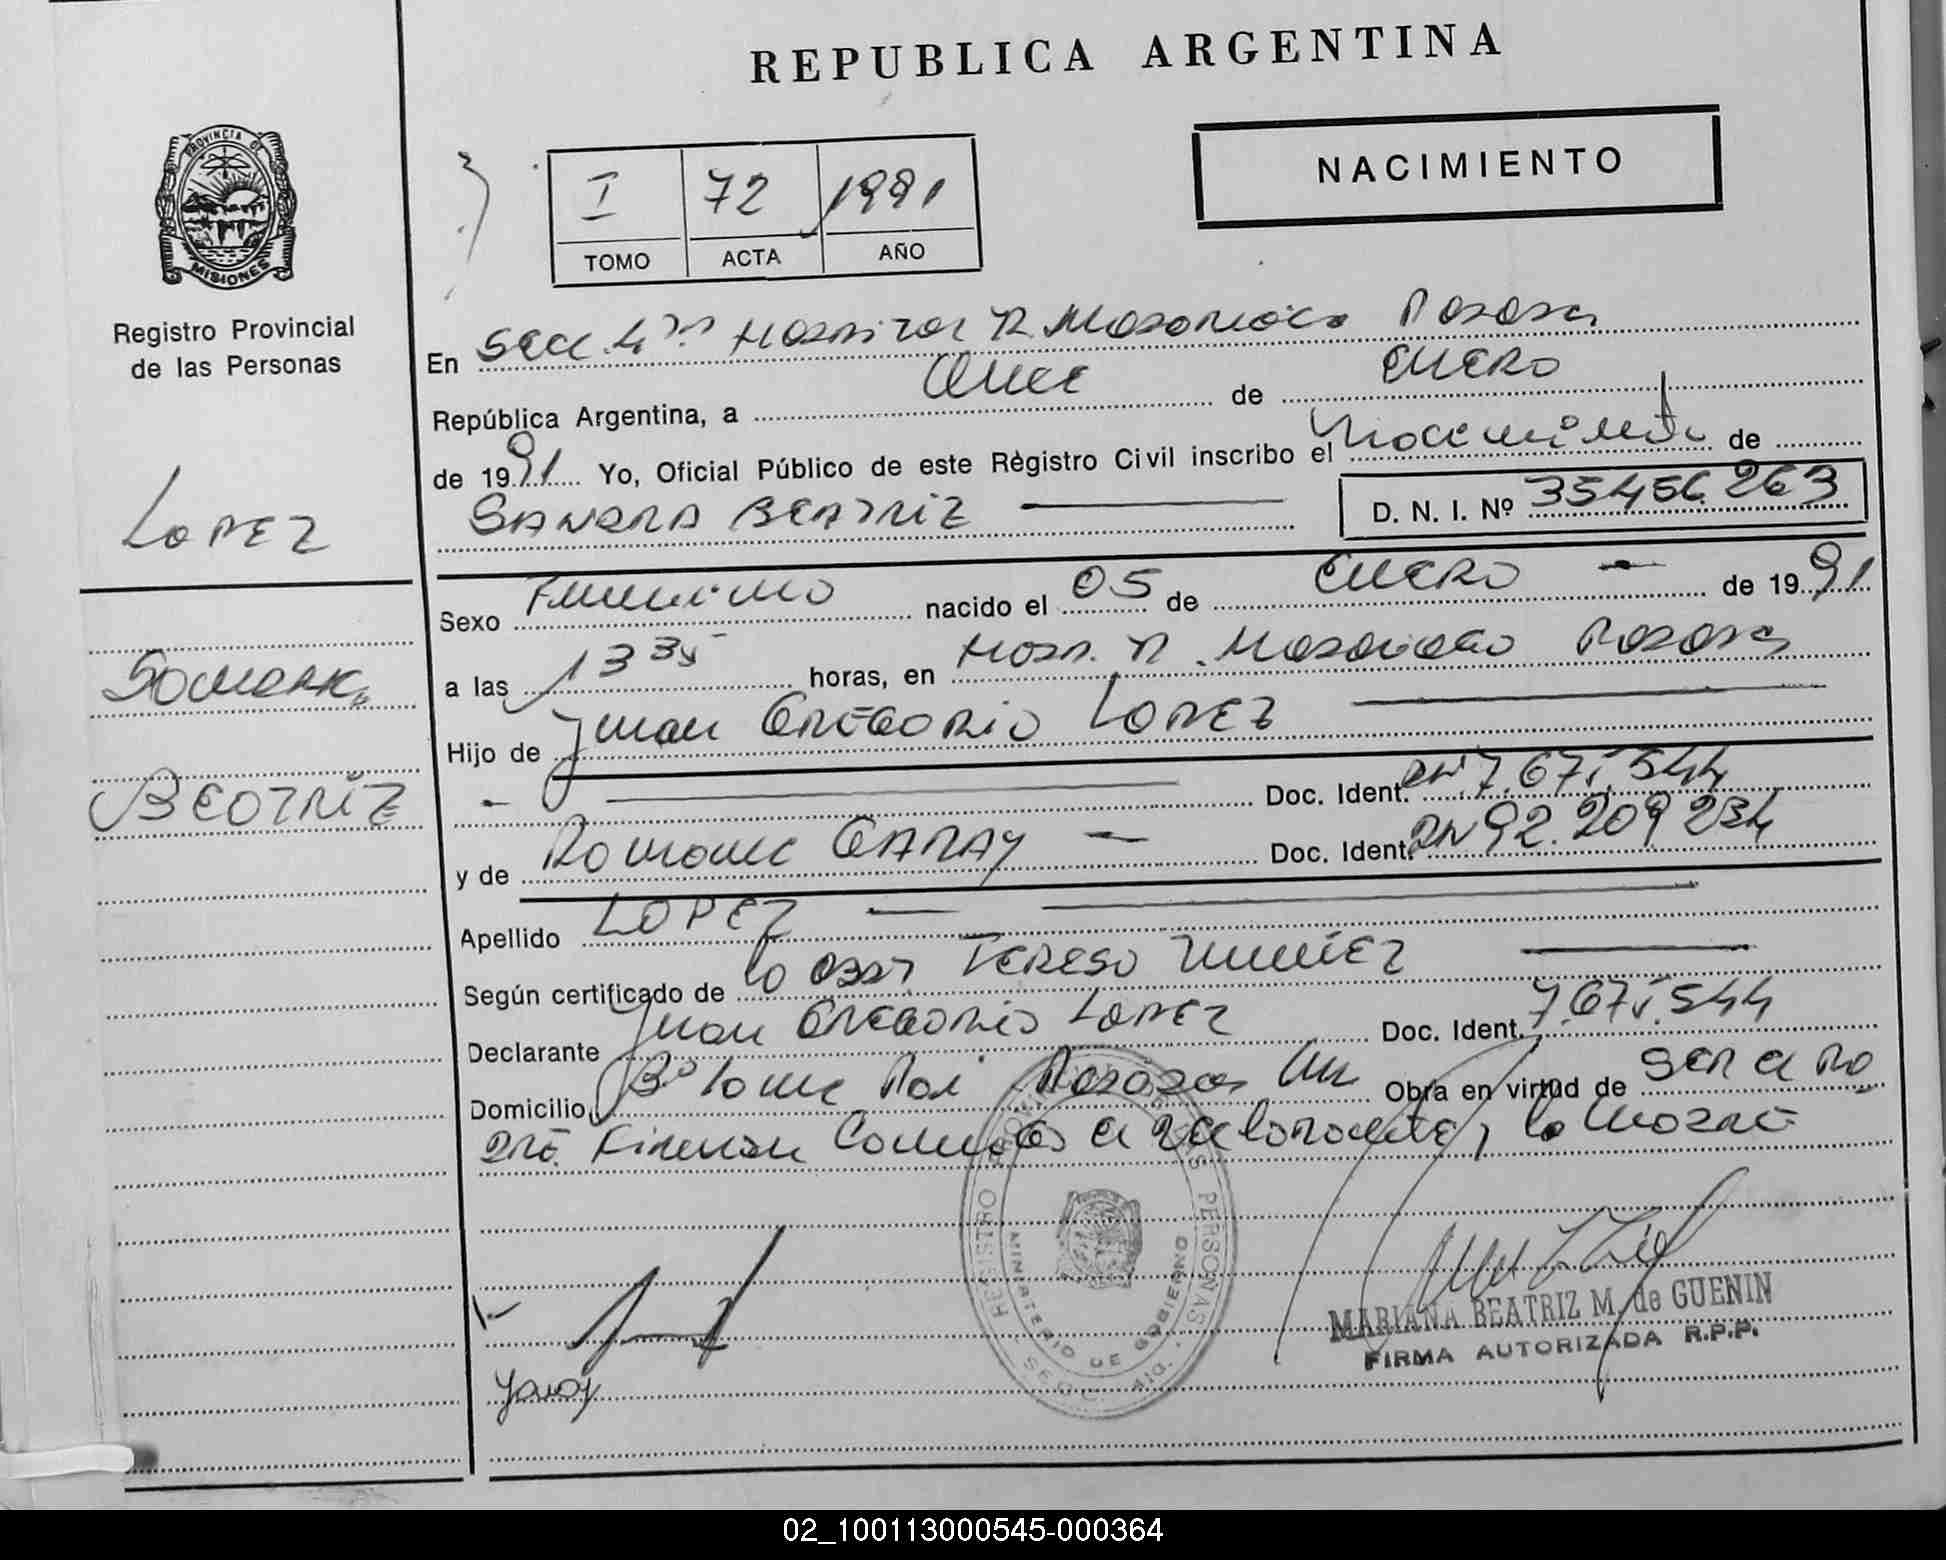 REPUBLICA ARGENTINA
NACIMIENTO
PROVINCIA DE
MISIONES
Registro Provincial
de las Personas
LOPEZ
SANDRA
BEATRIZ
I 72 1991
TOMO ACTA AÑO
En Secc. 4ta Hospital R. Madariaga Posadas
República Argentina, a Once de ENERO
de 1991 Yo, Oficial Público de este Registro Civil inscribo el Nacimiento de
SANDRA BEATRIZ D. N. I. Nº 35.456.263
Sexo Femenino nacido el 05 de ENERO de 1991
a las 13 35 horas, en Hosp. R. Madariaga Posadas
Hijo de Juan GREGORIO LOPEZ
Doc. Ident. DNI 7.671.544
y de Romona GARAY Doc. Ident. DNI 92.209.234
Apellido LOPEZ
Según certificado de la Obst. TERESA NUÑEZ
Declarante Juan GREGORIO LOPEZ Doc. Ident. 7.671.544
Domicilio Bº Posadas Obra en virtud de ser el Pa
dre. Firman el declarante y la madre
REGISTRO PERSONAS
MINISTERIO DE GOBIERNO
SECC. 4ta.
MARIANA BEATRIZ M. de GUENIN
FIRMA AUTORIZADA R.P.P.
Garay
02_100113000545-000364